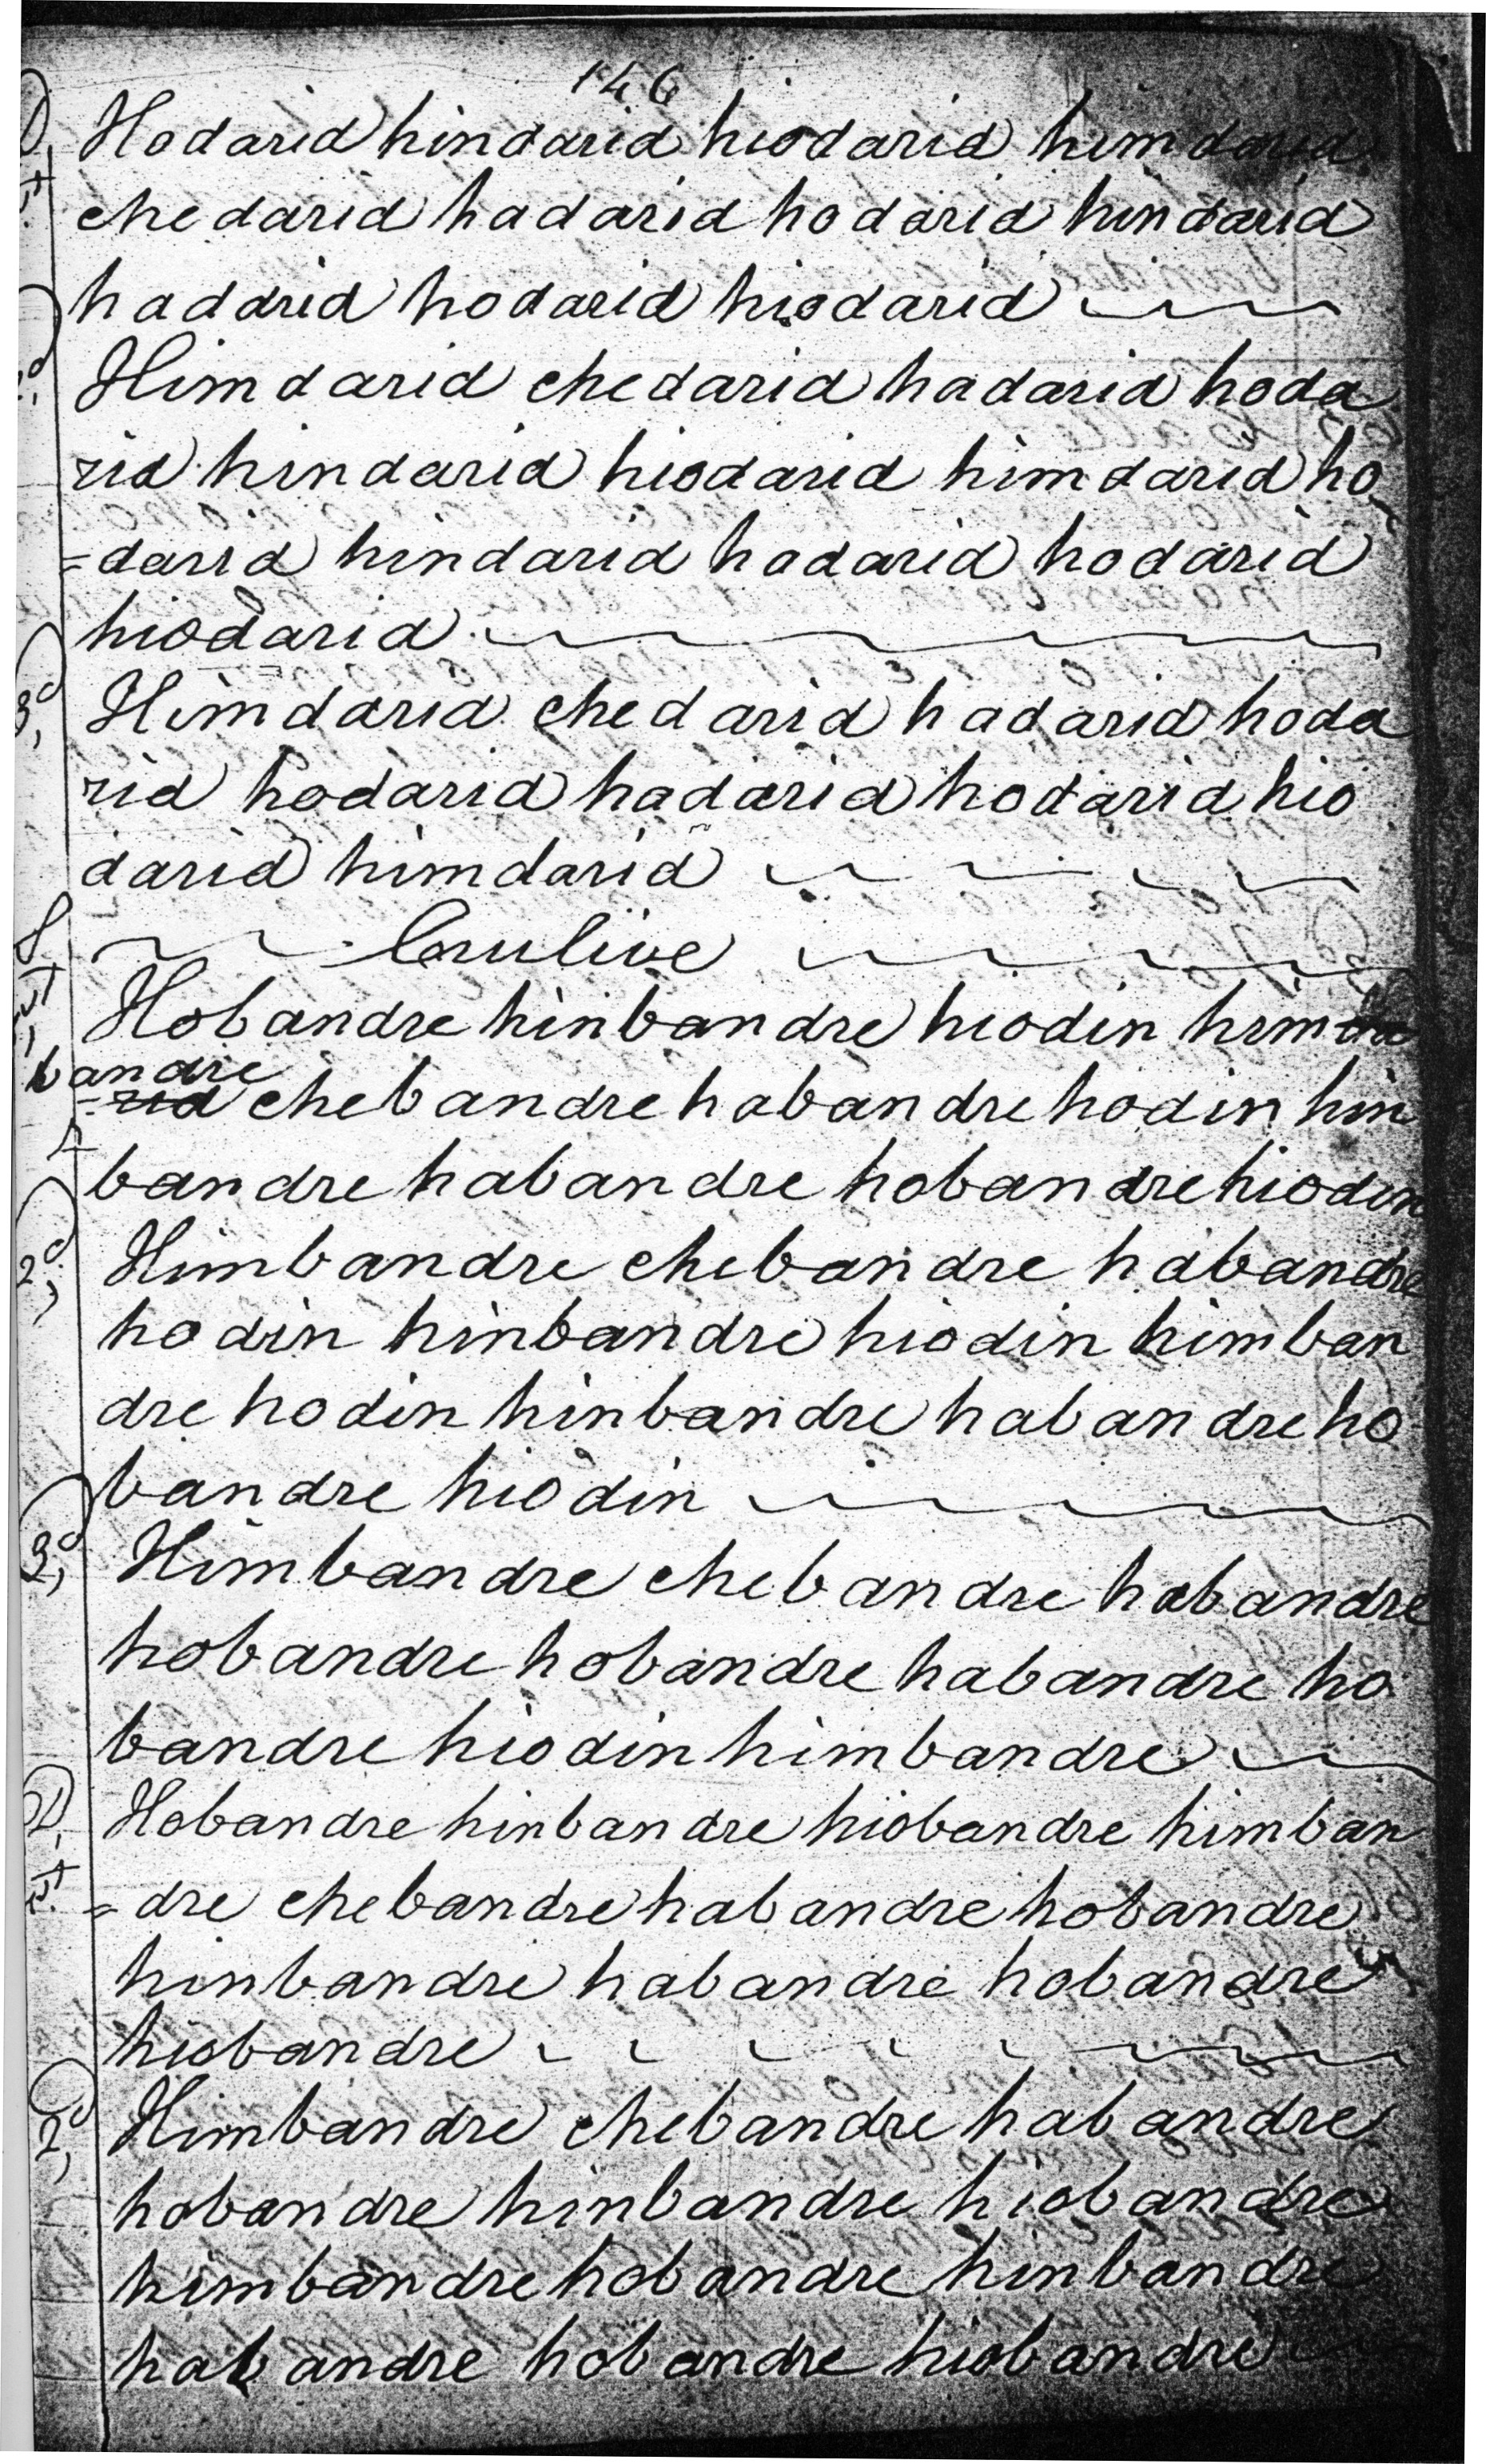 146
D, Hodarid hindarid hiodarid himdarid
1st chedarid hadarid hodarid hindarid
hadarid hodarid hiodarid
2d, Himdarid chedarid hadarid hoda
rid hindarid hiodarid himdarid ho
=darid hindarid hadarid hodarid
hiodarid
3d, Himdarid chedarid hadarid hoda
rid hodarid hadarid hodarid hio
darid himdarid
S Crulive
1st, Hobandre hinbandre hiodin himda
bandre
=rid chebandre habandre hodin hin
bandre habandre hobandre hiodin
2d, Himbandre chebandre habandre
hodin hinbandre hiodin himban
dre hodin hinbandre habandre ho
bandre hiodin
3d, Himbandre chebandre habandre
hobandre hobandre habandre ho
bandre hiodin himbandre
D, Hobandre hinbandre hiobandre himban
1st =dre chebandre habandre hobandre
hinbandre habandre hobandre
hiobandre
2d, Himbandre chebandre habandre
hobandre hinbandre hiobandre
himbandre hobandre hinbandre
habandre hobandre hiobandre